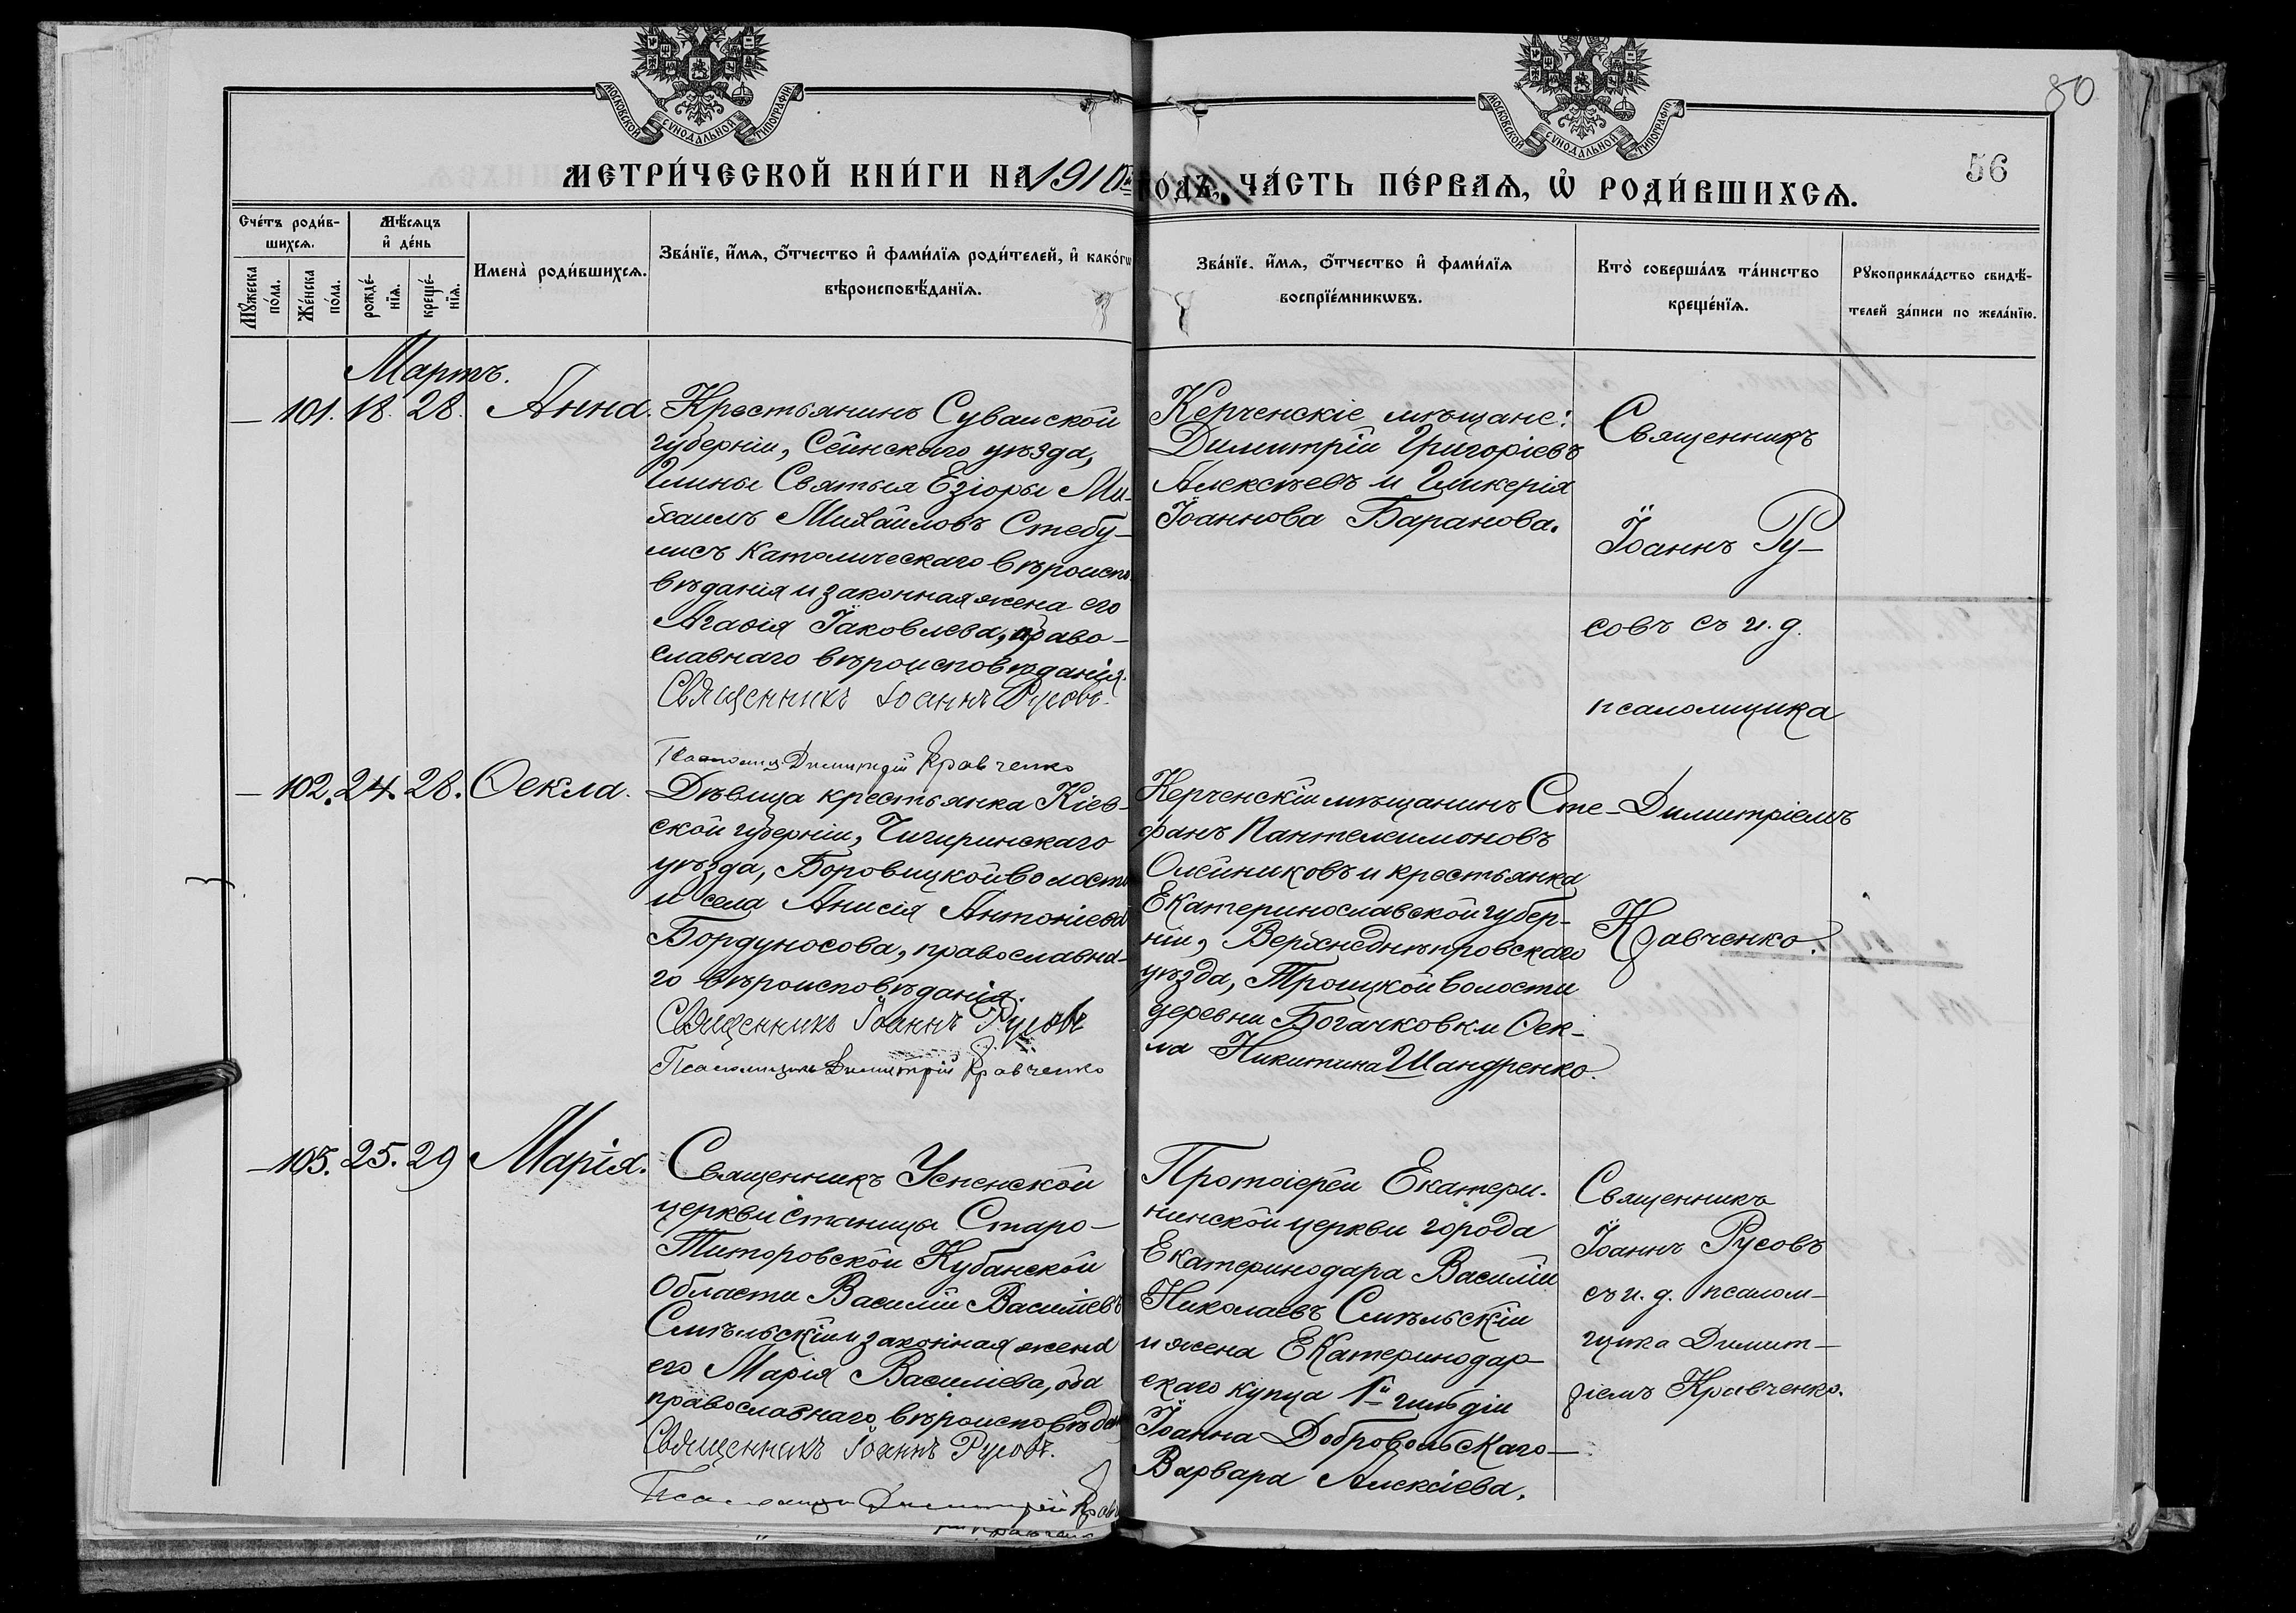 МОСКОВСКОЙ СУНОДАЛЬНОЙ ТИПОГРАФІИ
МОСКОВСКОЙ СУНОДАЛЬНОЙ ТИПОГРАФІИ
80
56
МЕТРИ́ЧЕСКОЙ КНИ́ГИ НА 1910й ГО́ДЪ, ЧА́СТЬ ПЕ́РВАѦ, Ѡ РОДИ́ВШИХСѦ.
Сче́тъ роди́в-
шихсѧ.
Мѣ́сѧцъ
и҆ де́нь
Мꙋ́жеска по́ла.
Же́нска по́ла.
рожде́-
нїѧ.
креще́-
нїѧ.
Имена̀ роди́вшихсѧ.
Зва́нїе, и҆́мѧ, ѻ҆́тчество и҆ фами́лїѧ роди́телей, и҆ како́гѡ
вѣроисповѣ́данїѧ.
Зва́нїе, и҆́мѧ, ѻ҆́тчество и҆ фами́лїѧ
воспрїе́мникѡвъ.
Кто̀ соверша́лъ та́инство
креще́нїѧ.
Рꙋкоприкла́дство свидѣ́-
телей за́писи по жела́нїю.
Мартъ.
— 101. 18. 28. Анна.
Крестьянинъ Сувалской
губерніи, Сейнскаго уѣзда,
Гмины Святыя Езіоры Ми-
хаилъ Михаиловъ Стебу-
лисъ католическаго вѣроиспо-
вѣданія и законная жена его
Агаѳія Іаковлева, право-
славнаго вѣроисповѣданія.
Священникъ Іоаннъ Русовъ.
Псаломщ Димитрій Кравченко
Керченскіе мѣщане:
Димитрій Григоріевъ
Алексѣевъ и Гликерія
Іоаннова Баранова.
Священникъ
Іоаннъ Ру-
совъ съ и.д.
псаломщика
Димитріемъ
Кравченко.
— 102. 24. 28. Ѳекла.
Дѣвица крестьянка Кіев-
ской губерніи, Чигиринскаго
уѣзда, Боровицкой волости
и села Анисія Антоніева
Бордуносова, православна-
го вѣроисповѣданія.
Священникъ Іоаннъ Русовъ
Псаломщикъ Димитрій Кравченко
Керченскій мѣщанинъ Сте-
фанъ Пантелеимоновъ
Олейниковъ и крестьянка
Екатеринославской губер-
ніи, Верхнеднѣпровскаго
уѣзда, Троицкой волости
деревни Богачковки Ѳек-
ла Никитина Шандренко.
— 105. 25. 29 Марія.
Священникъ Успенской
церкви станицы Старо-
Титоровской Кубанской
Области Василій Василіевъ
Смѣльскій и законная жена
его Марія Василіева, оба
православнаго вѣроисповѣдан
Священникъ Іоаннъ Русовъ.
Псаломщи Димитрій Крав
Протоіерей Екатери-
нинской церкви города
Екатеринодара Василій
Николаевъ Смѣльскій
и жена Екатеринодар-
скаго купца 1й гильдіи
Іоанна Добровольскаго—
Варвара Алексіева.
Священникъ
Іоаннъ Русовъ
съ и.д. псалом-
щика Димит-
ріемъ Кравченко.